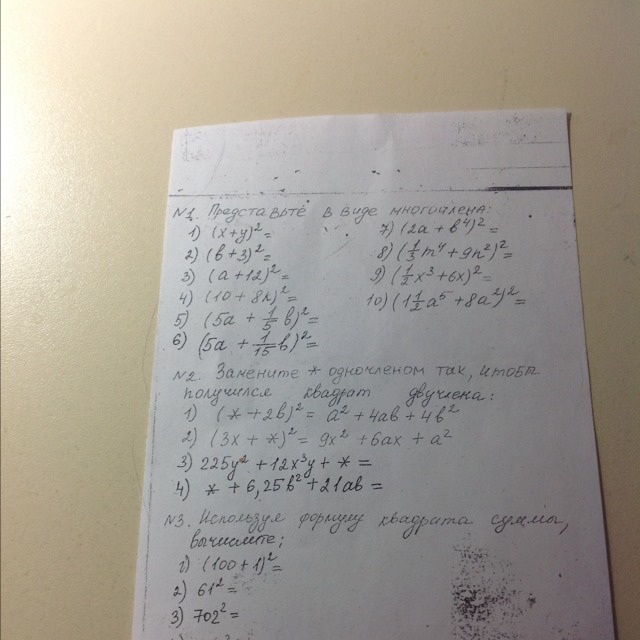 №1. Представьте в виде многочлена:
1) (x+y)²=
2) (b+3)²=
3) (a+12)²=
4) (10+8k)²=
5) (5a + 1/5 b)²=
6) (5a + 1/15 b)²=
7) (2a + b⁴)²=
8) (1/3 m⁴ + 9n²)²=
9) (1/2 x³ + 6x)²=
10) (1 1/2 a⁵ + 8a²)²=
№2. Замените * одночленом так, чтобы
получился квадрат двучлена:
1) (* + 2b)² = a² + 4ab + 4b²
2) (3x + *)² = 9x² + 6ax + a²
3) 225y² + 12x³y + * =
4) * + 6,25b² + 21ab =
№3. Используя формулу квадрата суммы,
вычислите;
1) (100+1)²=
2) 61²=
3) 702²=